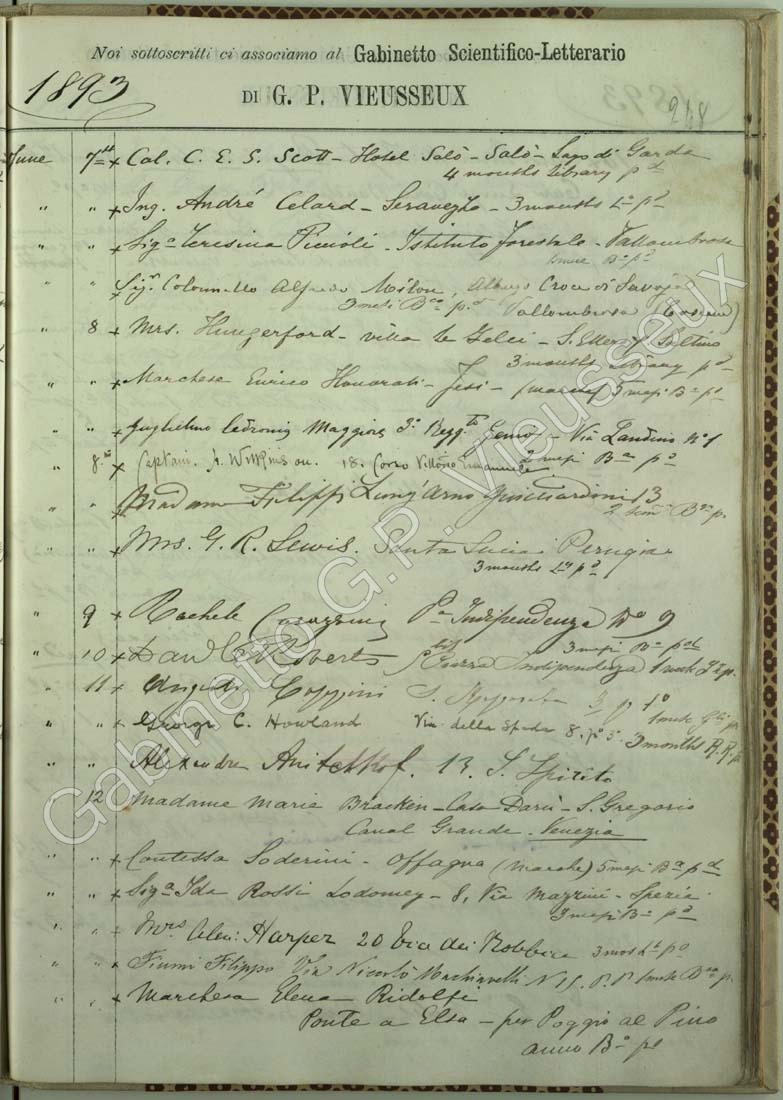 Noi sottoscritti ci associamo al Gabinetto Scientifico-Letterario
DI G. P. VIEUSSEUX
1893
248
June 7th × Col. C. E. S. Scott - Hotel Salò - Salò - Lago di Garda
4 months library pd
" " × Ing. André Celard - Seravezza - 3 months Ly pd
" " × Siga Teresina Piccioli - Istituto Forestale - Vallombrosa
1 mese Ba pd
" " × Sigr Colonnello Alfredo Albergo Croce di Savoja
3 mesi Bca pd Vallombrosa (Toscana)
" 8 × Mrs. Hungerford - villa S. Pellegrino
3 months library pd
" " × Marchese Enrico Honorati - Jesi - (Marche) 3 mesi Ba pd
" " × Guglielmo Maggiore 3° Reggto Genio - Via Landino n° 1
2 mesi Ba pd
" 8. × Captain. A. Wilkinson. 18. Corso Vittorio Emanuele
" " × Madame Filippi Lung'Arno Guicciardini 13
2 sem Bca p.
" " × Mrs. G. R. Lewis. Santa Lucia. Perugia
3 months Ly pd
" 9 × Rachele Pa Indipendenza No 9
3 mesi Ba pd
" 10 × Roberts Piazza Indipendenza 1 week
" 11 × Coppini S. 3 p. 1°
1 mese
" " × George C. Howland Via della Spada 8. po 3° 3 months R. R. p.
" " Alexandre Anitchkof. 13. S. Spirito
" 12 × Madame Marie Bracken - Casa Dario - S. Gregorio
Canal Grande - Venezia
" " × Contessa Soderini - Offagna (Marche) 5 mesi Ba pd
" " × Siga Ida Rossi Lodomez - 8, Via Mazzini - Spezia
3 mesi Ba pd
" " × Mrs Harper 20 Via dei Robbia 3 mos Ly pd
" " × Fiumi Filippo Via Nicolò Machiavelli N 15. 1 mese Bca p.
" " × Marchesa Elena Ridolfi
Ponte a Elsa - per Poggio al Pino
anno Ba pd
Gabinetto G.P. Vieusseux